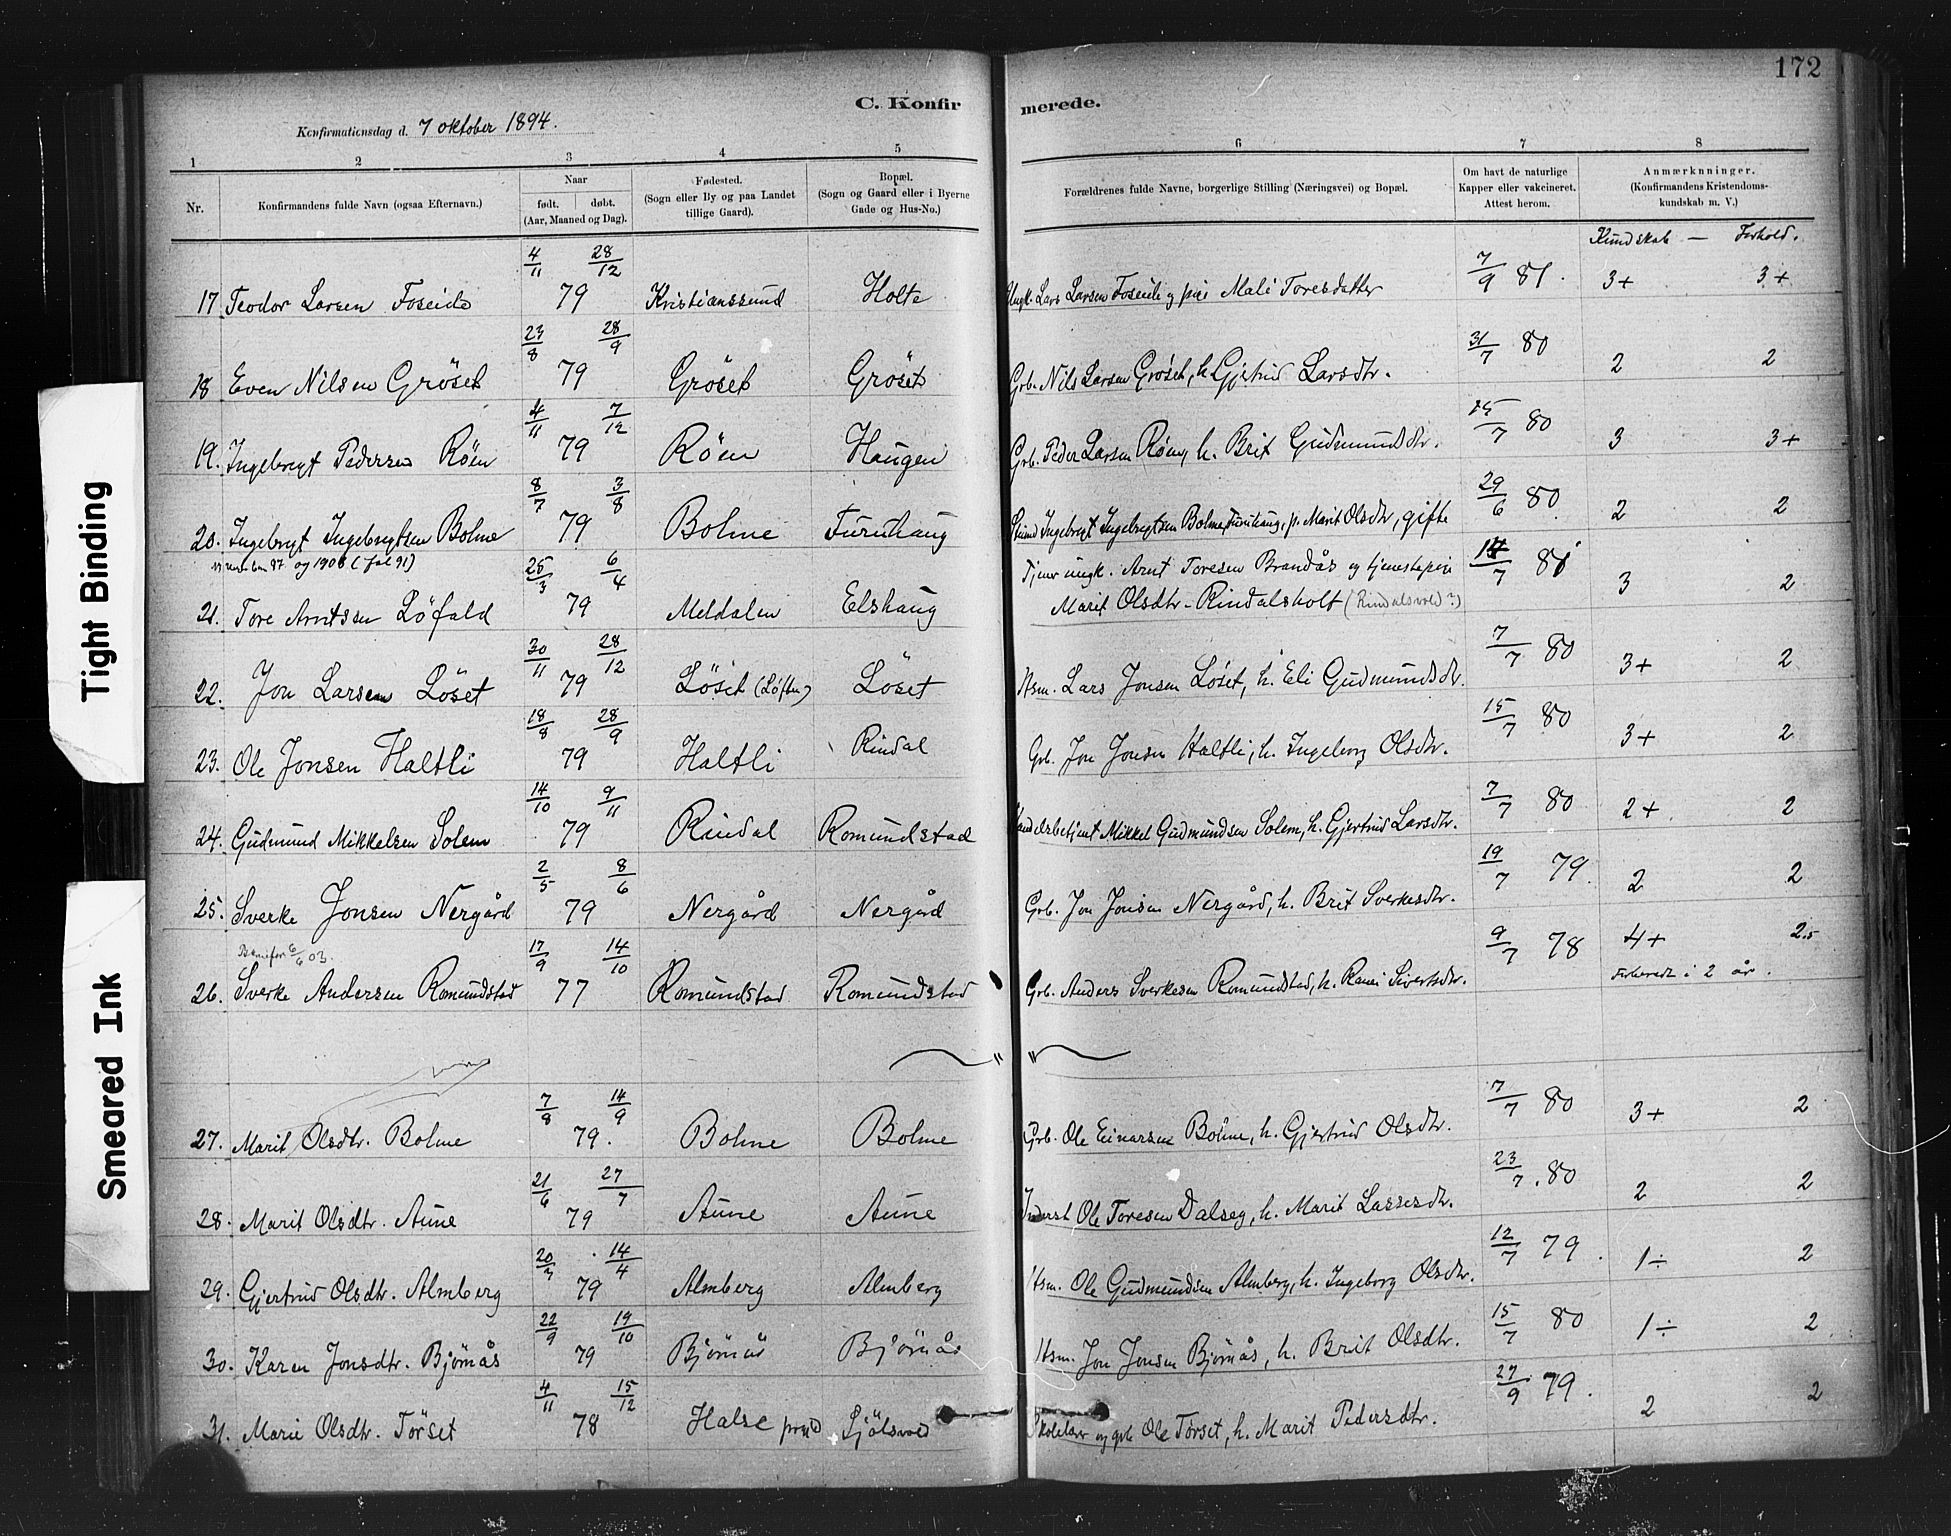 172
C. Konfirmerede.
Konfirmationsdag d. 7 oktober 1894.
1 2 3 4 5 6 7 8
Nr. Konfirmandens fulde Navn (ogsaa Efternavn.) Naar født. døbt. (Aar, Maaned og Dag). Fødested. (Sogn eller By og paa Landet tillige Gaard). Bopæl. (Sogn og Gaard eller i Byerne Gade og Hus-No.) Forældrenes fulde Navne, borgerlige Stilling (Næringsvei) og Bopæl. Om havt de naturlige Kapper eller vakcineret. Attest herom. Anmærknninger. (Konfirmandens Kristendoms-kundskab m. V.)
Kundskab — Forhold.
17. Teodor Larsen Foseide 4/11 28/12 79 Kristianssund Holte Ungk. Lars Larsen Foseide og pige Mali Toresdatter 7/9 81. 3+ 3+
18 Even Nilsen Gröset 23/8 28/9 79 Gröset Gröset Grb. Nils Larsen Grøset, h. Gjertrud Larsdtr. 31/7 80 2 2
19. Ingebrigt Pedersen Röen 4/11 7/12 79 Röen Haugen Grb. Peder Larsen Røen, h. Brit Gudmundsdtr. 15/7 80 3 3+
20. Ingebrygt Ingebrygtsen Bolme 8/7 3/8 79 Bolme Furuhaug Ingebrygt Ingebrygtsen Bolme, Furuhaug, p. Marit Olsdtr, gifte 29/6 80 2 2
og 1906 (fol 91)
21. Tore Arntsen Löfald 25/3 6/4 79 Meldalen Elshaug Tjener ungk. Arnt Toresen Brandås og tjenestepige Marit Olsdtr - Rindalsholt (Rindalsvold?) 14/7 81 3 2
22. Jon Larsen Löset 30/11 28/12 79 Löset (Løften) Löset Hsm. Lars Jonsen Løset, h. Eli Gudmundsdtr. 7/7 80 3+ 2
23. Ole Jonsen Haltli 18/8 28/9 79 Haltli Rindal Grb. Jon Jonsen Haltli, h. Ingeborg Olsdtr. 15/7 80 3+ 2
24. Gudmund Mikkelsen Solem 14/10 9/11 79 Rindal Romundstad Handelsbetjent Mikkel Gudmundsen Solem, h. Gjertrud Larsdtr. 7/7 80 2+ 2
25. Sverke Jonsen Nergård 2/5 8/6 79 Nergård Nergård Grb. Jon Jonsen Nergård, h. Brit Sverkesdtr. 19/7 79. 2 2
6/6 03.
26. Sverke Andersen Romundstad 17/9 14/10 77 Romundstad Romundstad Grb. Anders Sverkesen Romundstad, h. Rani Sivertsdtr. 9/7 78 4+ 2.5
Forberedt i 2 år.
27. Marit Olsdtr. Bolme 7/8 14/9 79. Bolme Bolme Grb. Ole Einarsen Bolme, h. Gjertrud Olsdtr. 7/7 80 3+ 2
28. Marit Olsdtr. Aune 21/6 27/7 79 Aune Aune Inderst Ole Toresen Dalseg, h. Marit Lassesdtr. 23/7 80 2 2
29. Gjertrud Olsdtr. Almberg 20/3 14/4 79 Almberg Almberg Hsm. Ole Gudmundsen Almberg, h. Ingeborg Olsdtr. 12/7 79. 1÷ 2
30. Karen Jonsdtr. Bjørnås 22/9 19/10 79 Bjørnås Bjørnås Hsm. Jon Jonsen Bjørnås, h. Brit Olsdtr. 15/7 80 1÷ 2
31. Marie Olsdtr. Törset 4/11 15/12 78 Halse Sjölsvold Skolelærer og grb Ole Tørset, h. Marit Pedersdtr. 27/9 79. 2 2
Tight Binding
Smeared Ink